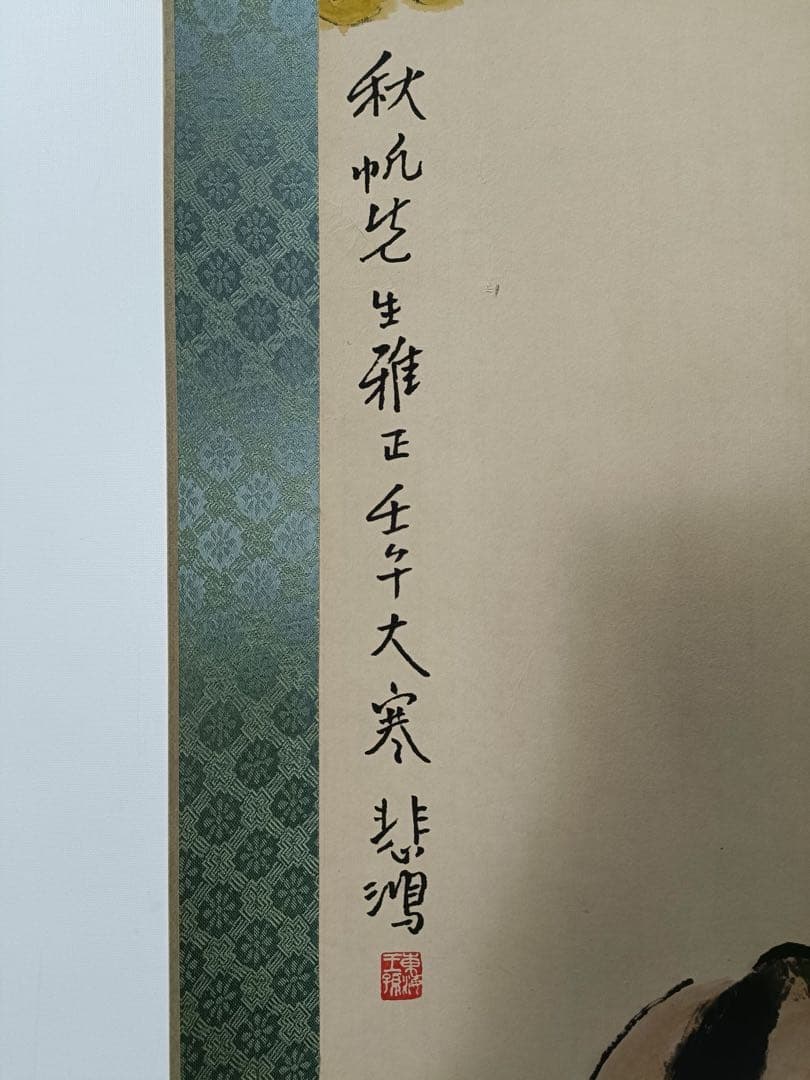 秋帆先生雅正壬午大寒悲鴻
東海王孫